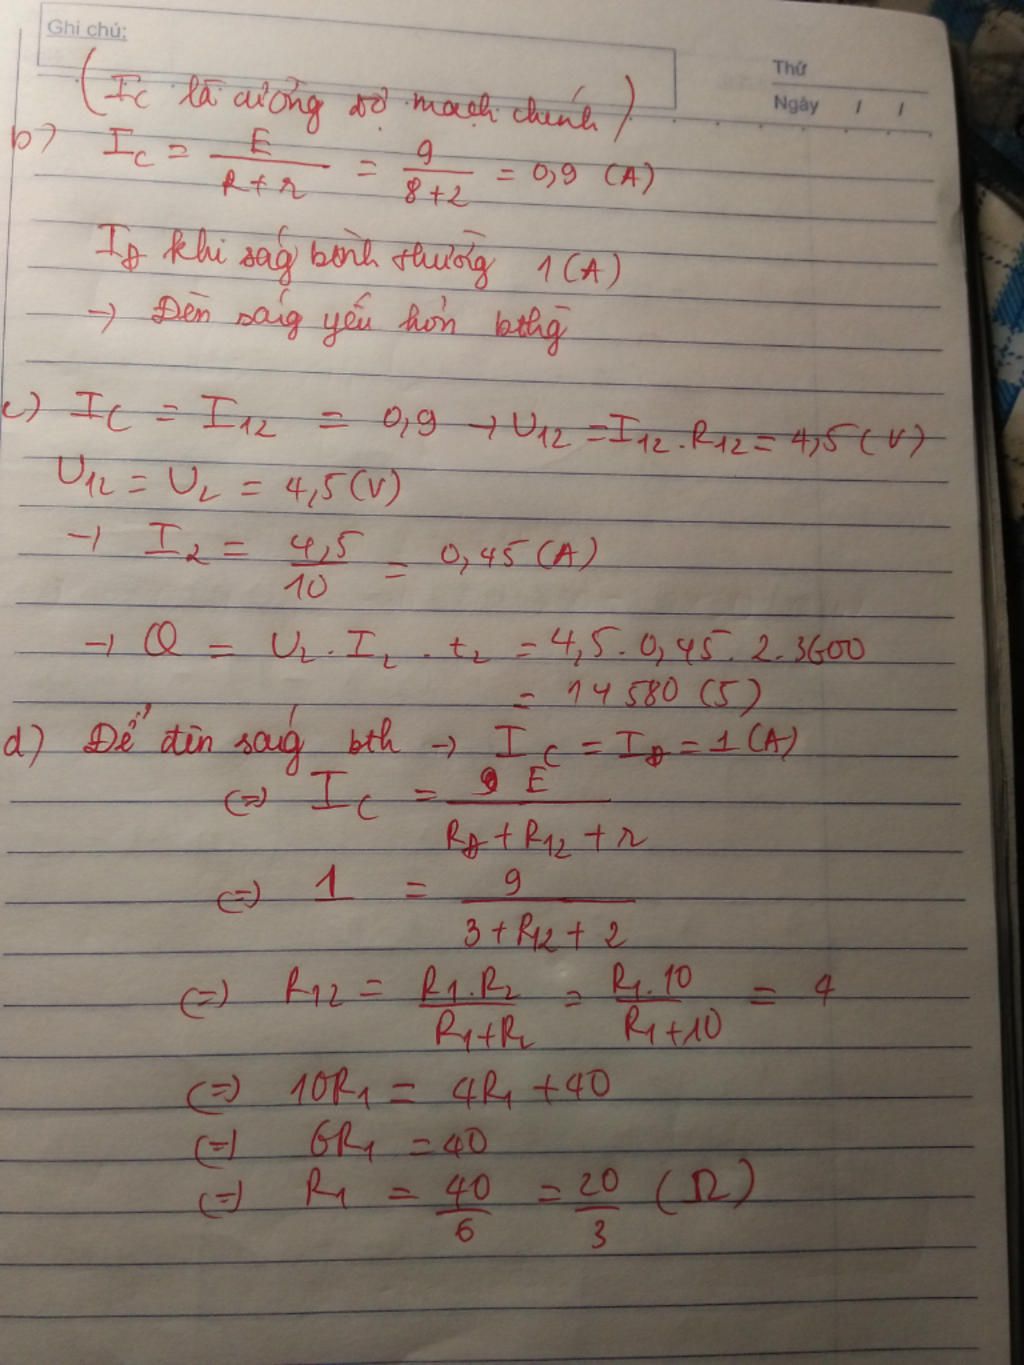 Ghi chú:
Thứ
Ngày / /
(I_C là cường độ mạch chính)
b) I_C = E / (R + r) = 9 / (8+2) = 0,9 (A)
I_Đ khi ság bình thường 1 (A)
→ Đèn sáng yếu hơn bthg
c) I_C = I_12 = 0,9 → U_12 = I_12 . R_12 = 4,5 (V)
U_12 = U_2 = 4,5 (V)
→ I_2 = 4,5 / 10 = 0,45 (A)
→ Q = U_2 . I_2 . t_2 = 4,5 . 0,45 . 2 . 3600
= 14580 (J)
d) Để đèn sáng bth → I_C = I_Đ = 1 (A)
(=) I_C = E / (R_Đ + R_12 + r)
(=) 1 = 9 / (3 + R_12 + 2)
(=) R_12 = R_1 . R_2 / (R_1 + R_2) = R_1 . 10 / (R_1 + 10) = 4
(=) 10R_1 = 4R_1 + 40
(=) 6R_1 = 40
(=) R_1 = 40 / 6 = 20 / 3 (Ω)